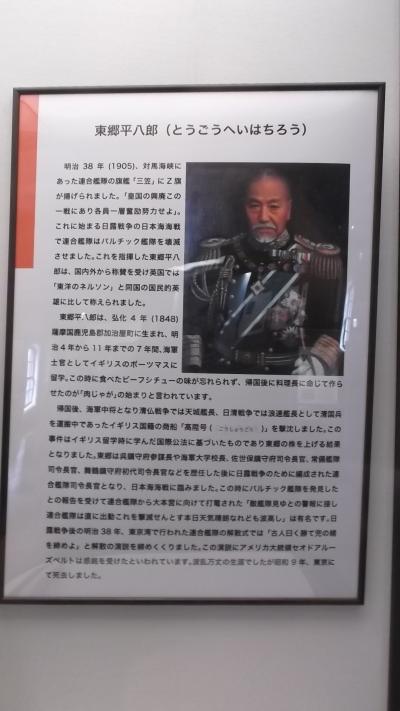 東郷平八郎（とうごうへいはちろう）
明治 38 年 (1905)、対馬海峡に
あった連合艦隊の旗艦「三笠」にZ旗
が揚げられました。「皇国の興廃この
一戦にあり各員一層奮励努力せよ」。
これに始まる日露戦争の日本海海戦
で連合艦隊はバルチック艦隊を壊滅
させました。これを指揮した東郷平八
郎は、国内外から称賛を受け英国では
「東洋のネルソン」と同国の国民的英
雄に比して称えられました。
東郷平八郎は、弘化 4 年 (1848)
薩摩国鹿児島郡加治屋町に生まれ、明
治4年から11年までの7年間、海軍
士官としてイギリスのポーツマスに
留学。この時に食べたビーフシチューの味が忘れられず、帰国後に料理長に命じて作ら
せたのが「肉じゃが」の始まりと言われています。
帰国後、海軍中将となり清仏戦争では天城艦長、日清戦争では浪速艦長として清国兵
を運搬中であったイギリス国籍の商船「高陞号（こうしょうごう）」を撃沈しました。この
事件はイギリス留学時に学んだ国際公法に基づいたものであり東郷の株を上げる結果
となりました。東郷は呉鎮守府参謀長や海軍大学校長、佐世保鎮守府司令長官、常備艦隊
司令長官、舞鶴鎮守府初代司令長官などを歴任した後に日露戦争のために編成された連
合艦隊司令長官となり、日本海海戦に臨みました。この時にバルチック艦隊を発見した
との報告を受けて連合艦隊から大本営に向けて打電された「敵艦隊見ゆとの警報に接し
連合艦隊は直に出動これを撃滅せんとす本日天気晴朗なれども波高し」は有名です。日
露戦争後の明治 38 年、東京湾で行われた連合艦隊の解散式では「古人曰く勝て兜の緒
を締めよ」と解散の演説を締めくくりました。この演説にアメリカ大統領セオドアルー
ズベルトは感銘を受けたといわれています。波乱万丈の生涯でしたが昭和 9 年、東京に
て死去しました。